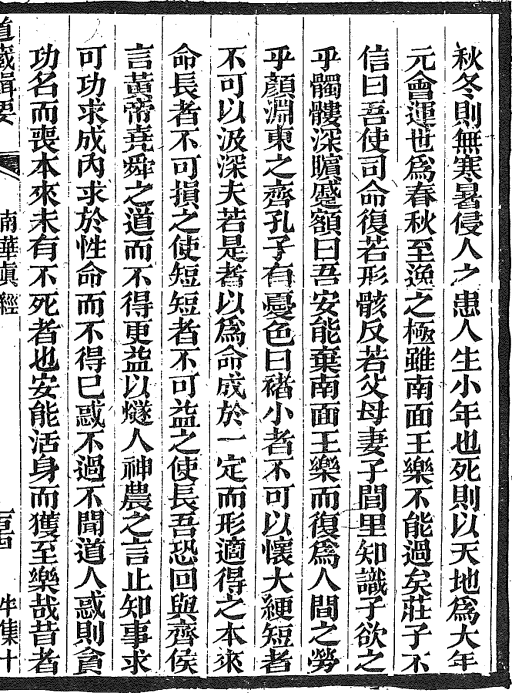 秋冬則無寒暑侵人之患人生小年也死則以天地爲大年
元會運世爲春秋至逸之極雖南面王樂不能過矣莊子不
信曰吾使司命復若形骸反若父母妻子閭里知識子欲之
乎髑髏深矉蹙額曰吾安能棄南面王樂而復爲人間之勞
乎顏淵東之齊孔子有憂色曰褚小者不可以懷大綆短者
不可以汲深夫若是者以爲命成於一定而形適得之本來
命長者不可損之使短短者不可益之使長吾恐回與齊侯
言黃帝堯舜之道而不得更益以燧人神農之言止知事求
可功求成內求於性命而不得已惑不過不聞道人惑則貪
功名而喪本來未有不死者也安能活身而獲至樂哉昔者
道藏輯要 南華眞經 牛集十